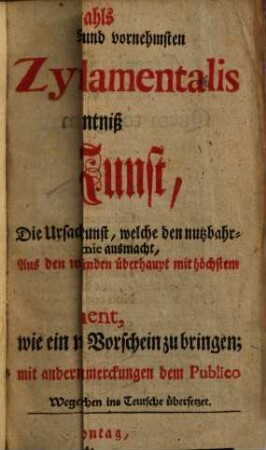 ahls
und vornehmsten
Zylamentalis
ntniß
Kunst,
Die Ursachunst, welche den nutzbahr-
mie ausmacht,
Aus den wänden überhaupt mit höchstem
ent,
wie ein n Vorschein zu bringen;
mit andernmerckungen dem Publico
Wegerben ins Teutsche übersetzet.
ontag,